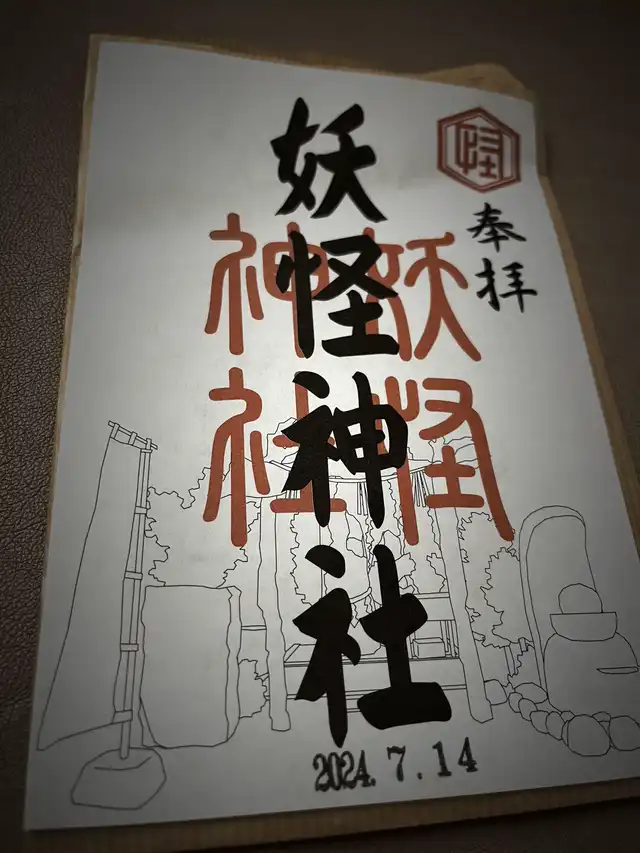 怪
奉拝
妖怪神社
妖怪
神社
2024.7.14